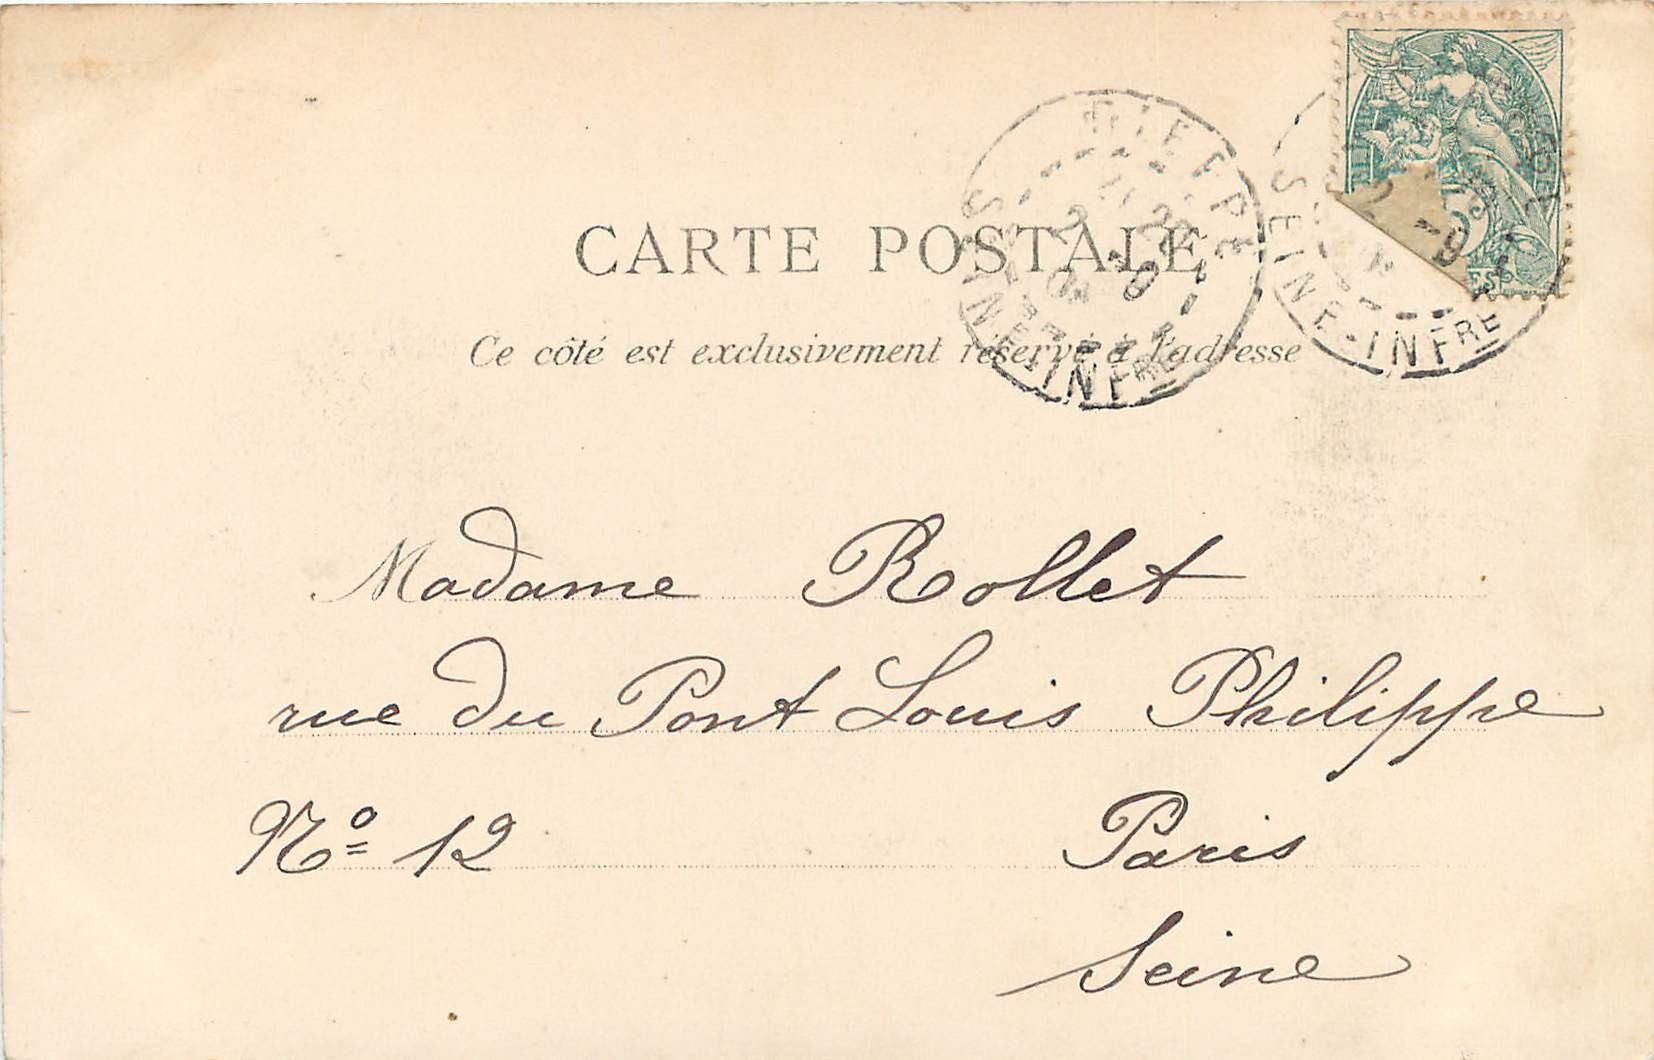 CARTE POSTALE
Ce côté est exclusivement réservé à l'adresse
DIEPPE
SEINE-INFRE
SEINE-INFRE
Madame Rollet
rue du Pont Louis Philippe
No 12 Paris
Seine